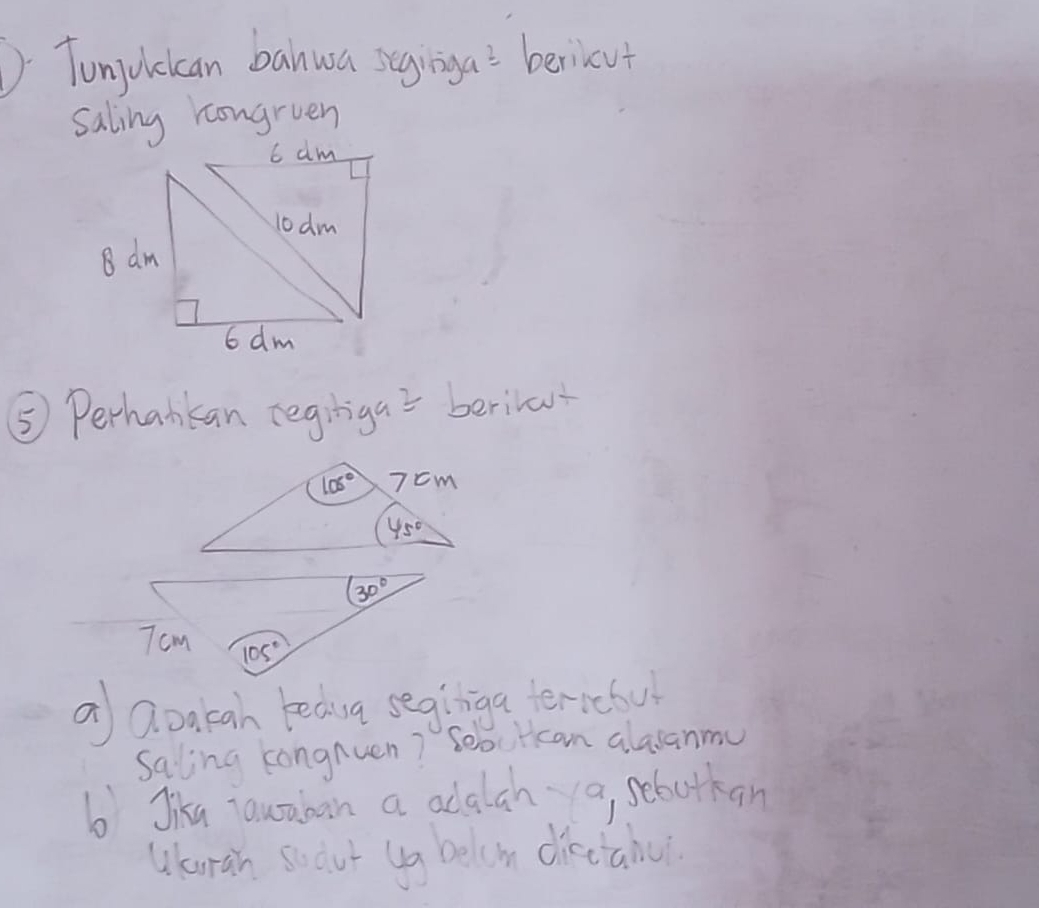 1). Tunjukkan bahwa segitiga² berikut
saling kongruen
6 dm
10 dm
8 dm
6 dm
⑤ Perhatikan segitiga² berikut
105° 7 cm
45°
30°
7cm
105°
a) apakah kedua segitiga tersebut
saling kongruen? Sebutkan alasanmu
b) Jika jawaban a adalah ya, sebutkan
Ukuran sudut yg belum diketahui.